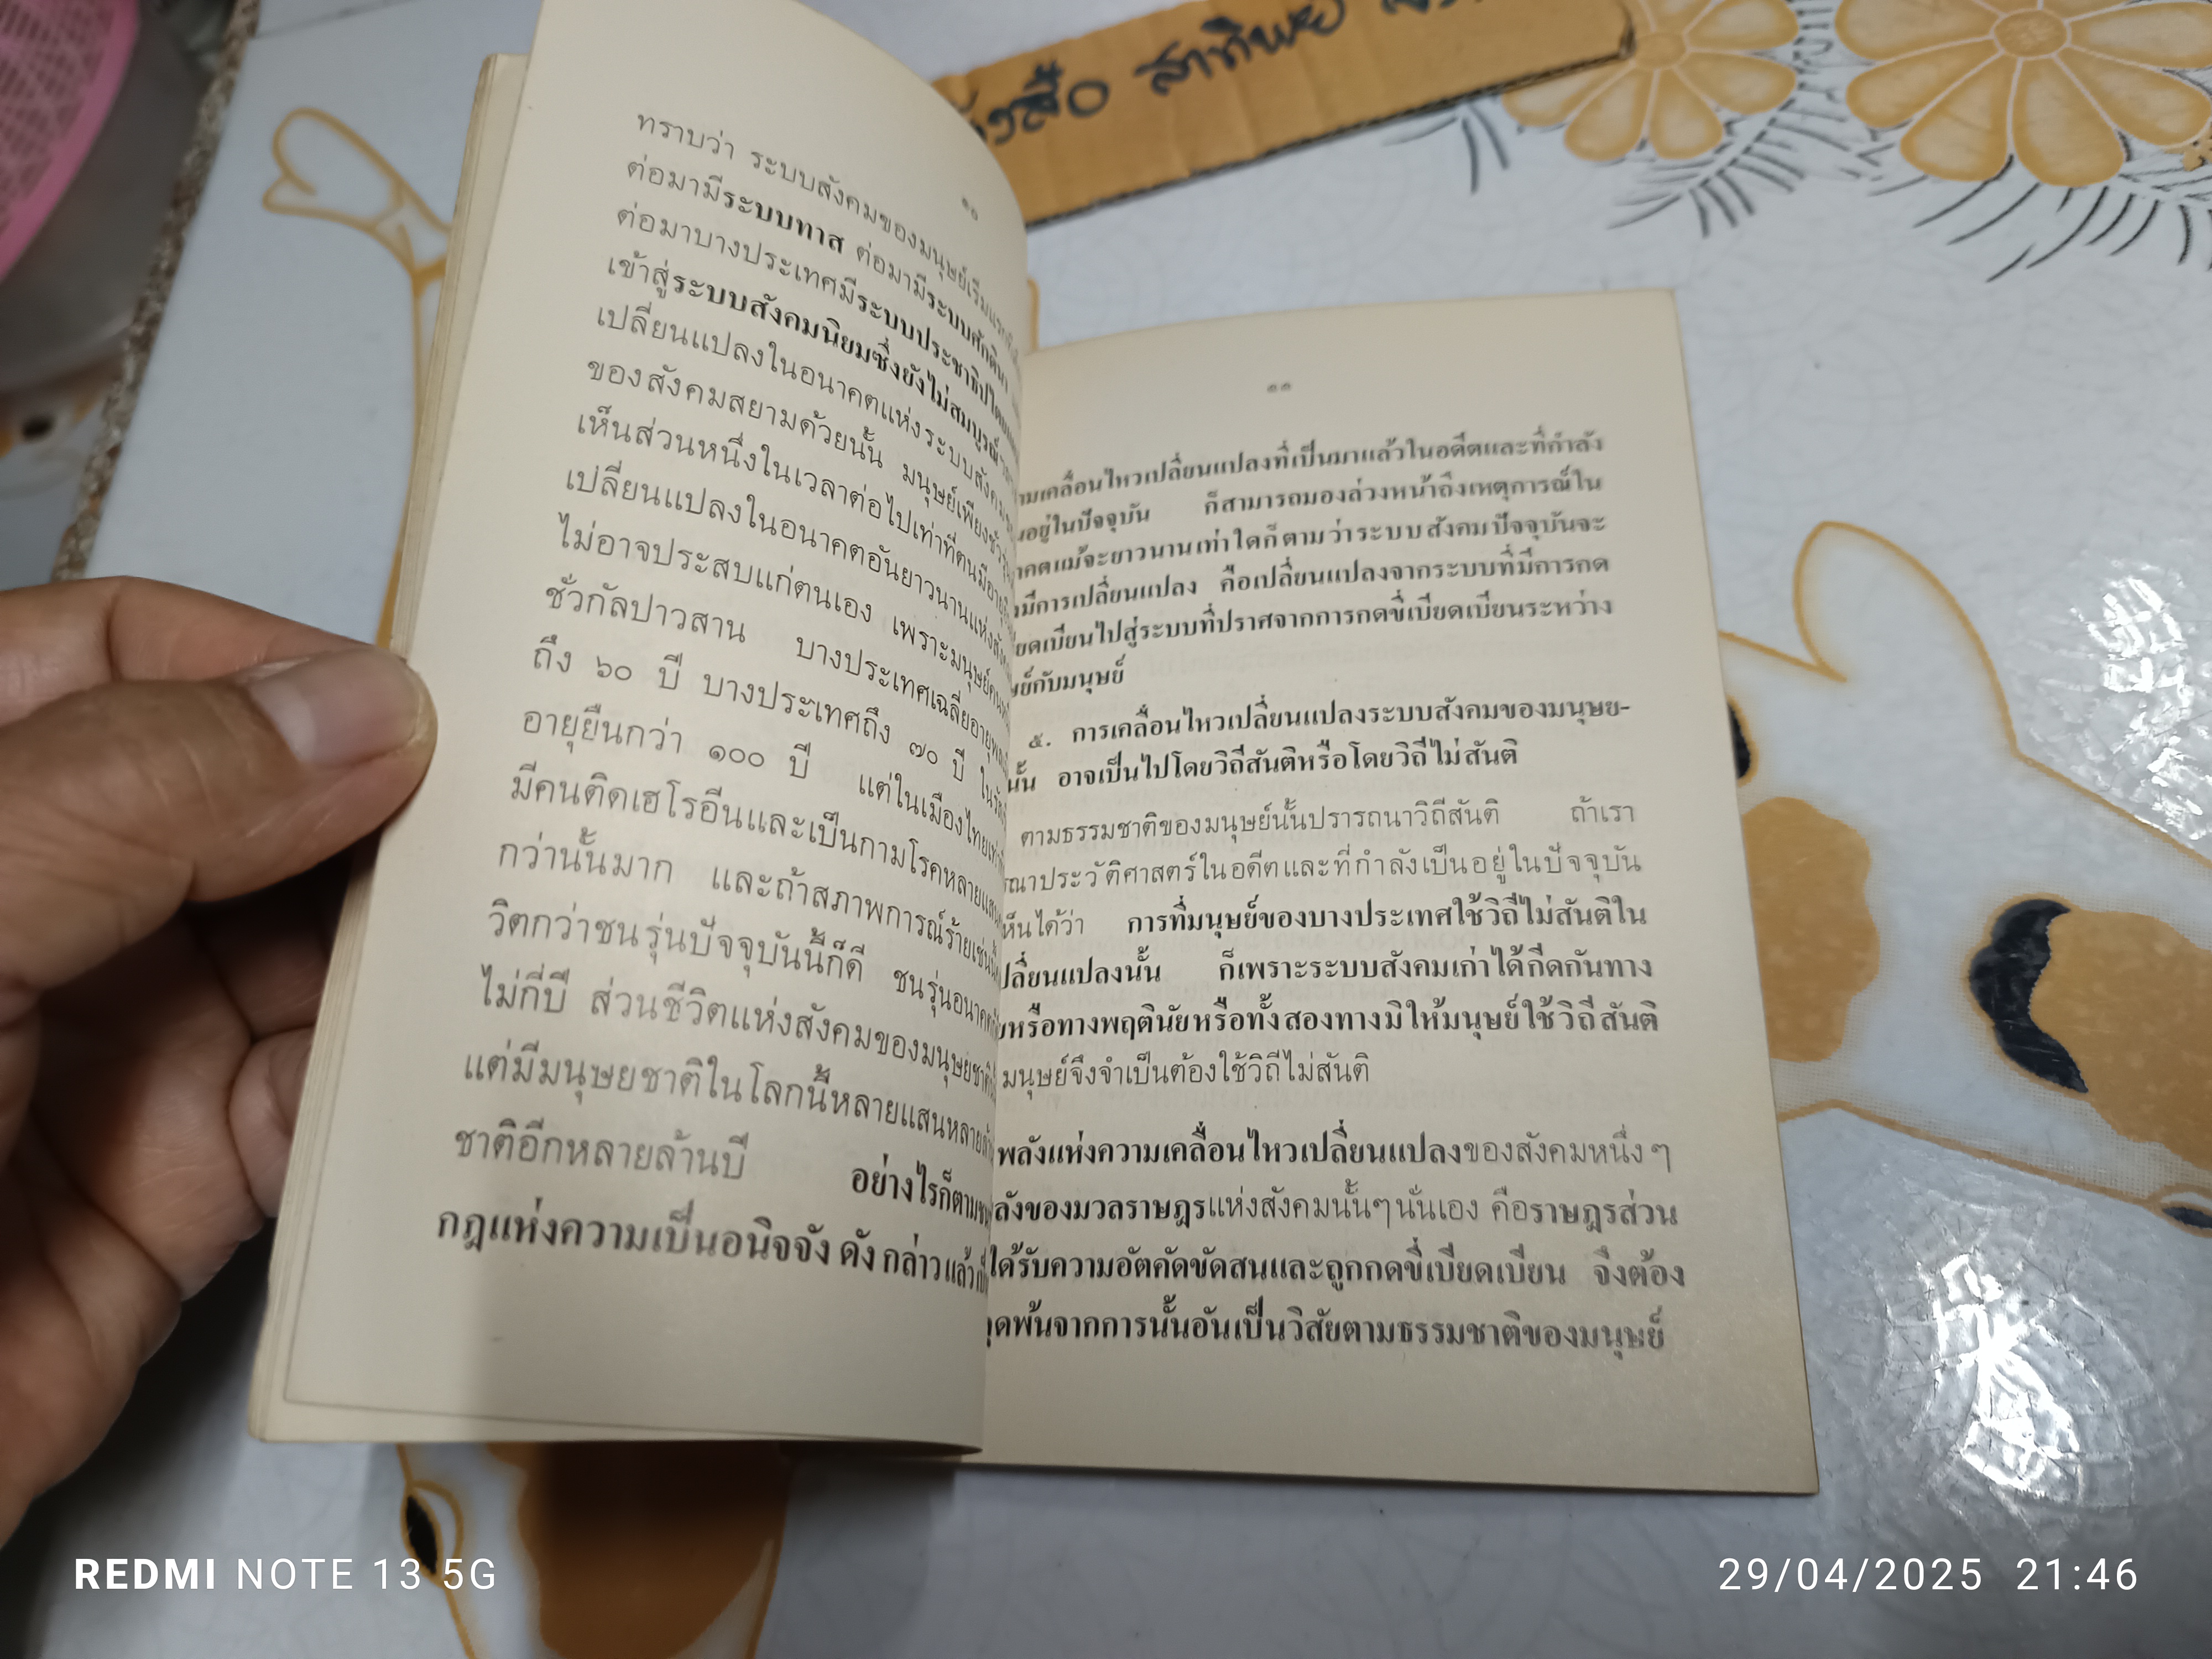 หนังสือ สาทิพย์
๑๐
ทราบว่า ระบบสังคมของมนุษย์เริ่มแรก
ต่อมามีระบบทาส ต่อมามีระบบศักดินา
ต่อมาบางประเทศมีระบบประชาธิปไตย
เข้าสู่ระบบสังคมนิยมซึ่งยังไม่สมบูรณ์
เปลี่ยนแปลงในอนาคตแห่งระบบสังคม
ของสังคมสยามด้วยนั้น มนุษย์เพียงชั่ว
เห็นส่วนหนึ่งในเวลาต่อไปเท่าที่ตนมีอายุ
เปลี่ยนแปลงในอนาคตอันยาวนานแห่งสังคม
ไม่อาจประสบแก่ตนเอง เพราะมนุษย์
ชั่วกัลปาวสาน บางประเทศเฉลี่ยอายุ
ถึง ๖๐ ปี บางประเทศถึง ๗๐ ปี
อายุยืนกว่า ๑๐๐ ปี แต่ในเมืองไทย
มีคนติดเฮโรอีนและเป็นกามโรคหลายแสน
กว่านั้นมาก และถ้าสภาพการณ์ร้ายเช่นนั้น
วิตกว่าชนรุ่นปัจจุบันนี้ก็ดี ชนรุ่นอนาคต
ไม่กี่ปี ส่วนชีวิตแห่งสังคมของมนุษยชาติ
แต่มีมนุษยชาติในโลกนี้หลายแสนหลาย
ชาติอีกหลายล้านปี อย่างไรก็ตาม
กฎแห่งความเป็นอนิจจัง ดังกล่าวแล้ว
๑๑
ามเคลื่อนไหวเปลี่ยนแปลงที่เป็นมาแล้วในอดีตและที่กำลัง
อยู่ในปัจจุบัน ก็สามารถมองล่วงหน้าถึงเหตุการณ์ใน
าคตแม้จะยาวนานเท่าใดก็ตามว่าระบบสังคมปัจจุบันจะ
มีการเปลี่ยนแปลง คือเปลี่ยนแปลงจากระบบที่มีการกด
ียดเบียนไปสู่ระบบที่ปราศจากการกดขี่เบียดเบียนระหว่าง
ย์กับมนุษย์
๕. การเคลื่อนไหวเปลี่ยนแปลงระบบสังคมของมนุษย-
นั้น อาจเป็นไปโดยวิถีสันติหรือโดยวิถีไม่สันติ
ตามธรรมชาติของมนุษย์นั้นปรารถนาวิถีสันติ ถ้าเรา
รณาประวัติศาสตร์ในอดีตและที่กำลังเป็นอยู่ในปัจจุบัน
ห็นได้ว่า การที่มนุษย์ของบางประเทศใช้วิถีไม่สันติใน
ปลี่ยนแปลงนั้น ก็เพราะระบบสังคมเก่าได้กีดกันทาง
หรือทางพฤตินัยหรือทั้งสองทางมิให้มนุษย์ใช้วิถีสันติ
มนุษย์จึงจำเป็นต้องใช้วิถีไม่สันติ
พลังแห่งความเคลื่อนไหวเปลี่ยนแปลงของสังคมหนึ่งๆ
ลังของมวลราษฎรแห่งสังคมนั้นๆนั่นเอง คือราษฎรส่วน
ได้รับความอัตคัดขัดสนและถูกกดขี่เบียดเบียน จึงต้อง
ุดพ้นจากการนั้นอันเป็นวิสัยตามธรรมชาติของมนุษย์
REDMI NOTE 13 5G
29/04/2025 21:46